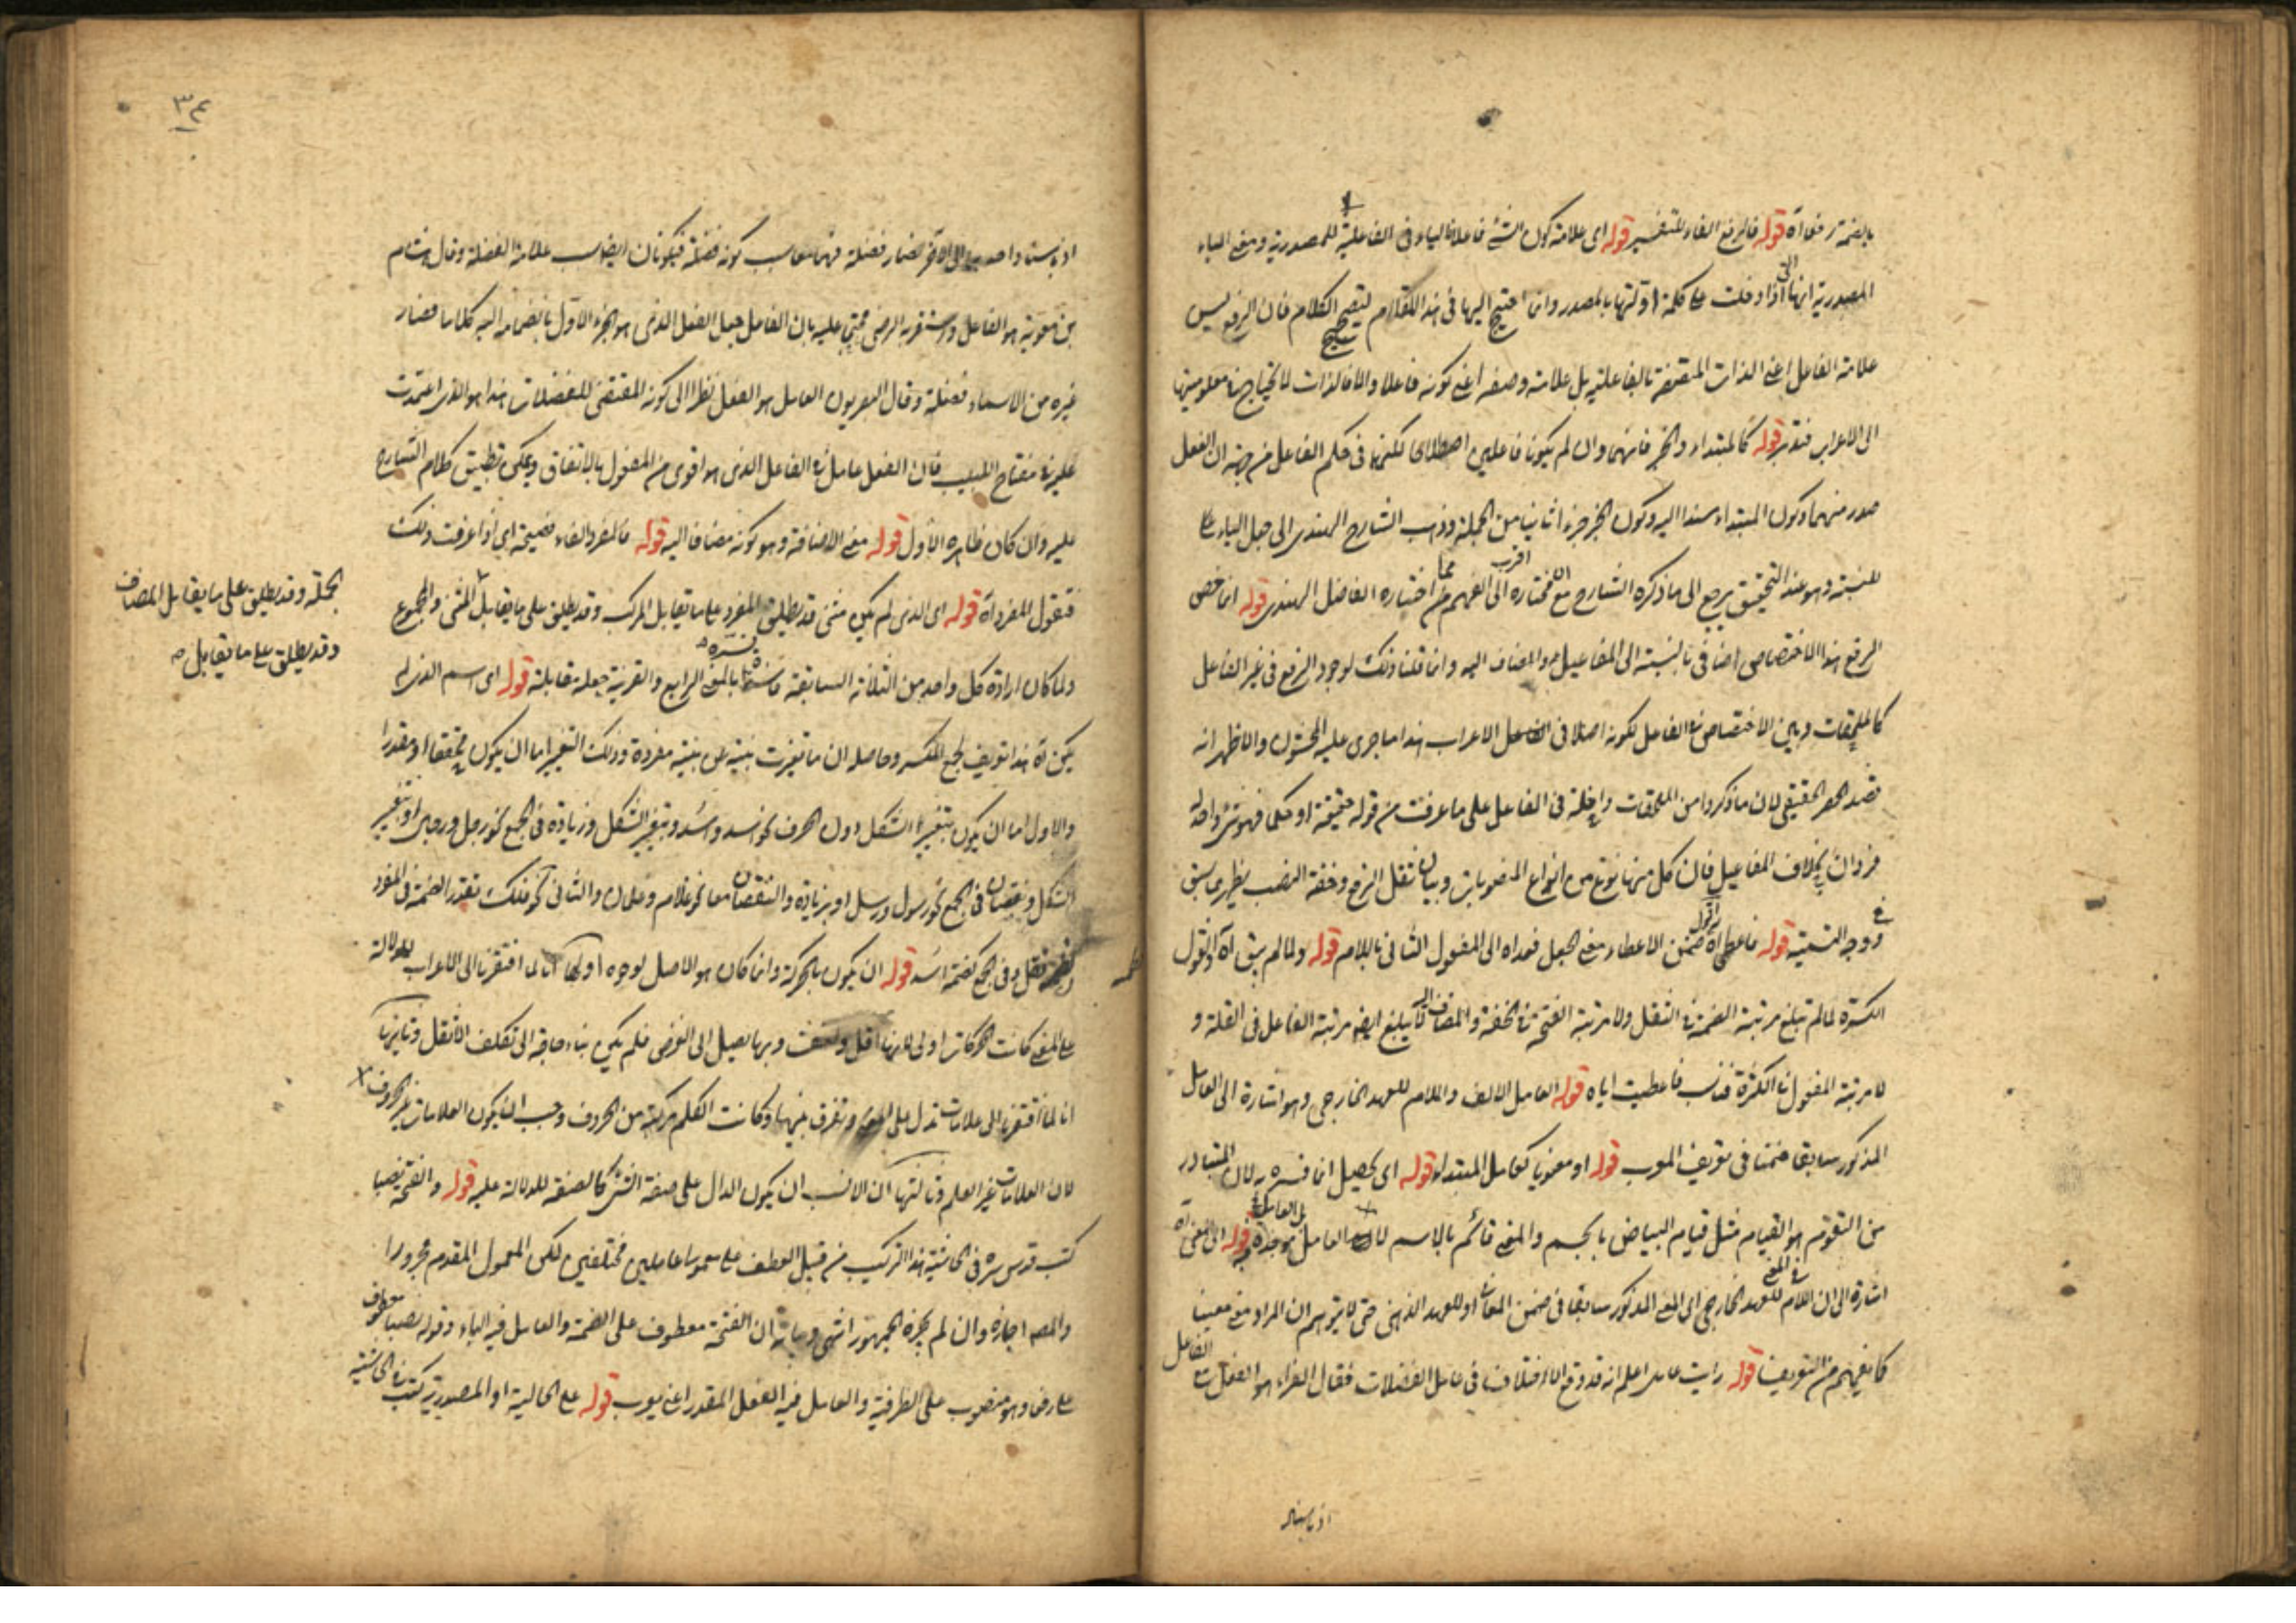 بالضمة رفعا آه قوله فالرفع الفاء للتفسير قوله اى علامة كون الشئ فاعلا فالياء فى الفاعلية للمصدرية ومعنى الياء
المصدرية انها التى اذا دخلت على كلمة اوّلتها بالمصدر وانما احتيج اليها فى هذا المقام ليصح الكلام فان الرفع ليس
علامة الفاعل اعنى الذات المتصفة بالفاعلية بل علامة وصفه اعنى كونه فاعلا والا فالذات لا يحتاج فى معلوميتها
الى الاعراب فتدبر قوله كالمبتداء والخبر فانهما وان لم يكونا فاعلين اصطلاحا لكنهما فى حكم الفاعل من جهة ان الفعل
صدر منهما وكون المبتداء مسندا اليه وكون الخبر جزء ثانيا من الجملة وذهب الشارح الهندى الى جعل الياء
للنسبة وهو عند التحقيق يرجع الى ما ذكره الشارح مع ان مختاره اقرب الى الفهم مما اختاره الفاضل الهندى قوله انما خص
الرفع هذا الاختصاص اضافى بالنسبة الى المفاعيل والمضاف اليه وانما قلنا ذلك لوجود الرفع فى غير الفاعل
كالملحقات وبين الاختصاص فى الفاعل لكونه اصلا فى الاعراب هذا ما جرى عليه المحشون والاظهر انه
قصد الحصر الحقيقى لان ما ذكروا من الملحقات داخلة فى الفاعل على ما عرفت من قوله حقيقة او حكما فهو شئ واحد له
فردان بخلاف المفاعيل فان كل منها نوع من انواع المنصوبات وبيان ثقل الرفع وخفة النصب يظهر مما سبق
فى وجه التسمية قوله فاعطى آه اقول ضمن الاعطاء معنى الجعل فعداه الى المفعول الثانى باللام قوله ولما لم يبق آه او نقول
الكسرة لما لم تبلغ مرتبة الضمة فى الثقل ولا مرتبة الفتحة فى الخفة والمضاف اليه لا يبلغ ايضا مرتبة الفاعل فى القلة و
لا مرتبة المفعول فى الكثرة فناسب فاعطيت اياه قوله العامل الالف واللام للعهد الخارجى وهو اشارة الى العامل
المذكور سابقا ضمنا فى تعريف المعرب قوله او معنويا كعامل المبتداء قوله اى يحصل انما فسره به لان المتبادر
من التقوم هو القيام مثل قيام البياض بالجسم والمعنى قائم بالاسم لا بالعامل بل العامل موجده قوله المعنى آه
اشارة الى ان اللام فى المعنى للعهد الخارجى اى المعنى المذكور سابقا فى ضمن المعانى او للعهد الذهنى حتى لا يتوهم ان المراد معنى معينا
كما يفهم من التعريف قوله رايت عامدا اعلم انه قد وقع الاختلاف فى عامل الفضلات فقال الفراء هو الفعل مع الفاعل
اذ باسناد
٣٤
اذ باسناد احدهما الى الآخر صار فضلة فهما سبب كونه فضلة فيكونان ايضا سبب علامة الفضلة وقال هشام
بن معوية هو الفاعل واستقر به الرضى محتجا عليه بان الفاعل جعل الفعل الذى هو الجزء الاول بانضمامه اليه كلاما فصار
غيره من الاسماء فضلة وقال البصريون العامل هو الفعل نظرا الى كونه المقتضى للفضلات هذا هو الذى اعتمدت
عليه فى مفتاح اللبيب فان الفعل عامل فى الفاعل الذى هو اقوى من المفعول بالاتفاق ويمكن تطبيق كلام الشارح
عليه وان كان ظاهره الاول قوله معنى الاضافة وهو كونه مضافا اليه قوله فالمفرد الفاء فصيحة اى اذا عرفت ذلك
فنقول المفرد آه قوله اى الذى لم يكن مثنى قد يطلق المفرد على ما يقابل المركب وقد يطلق على ما يقابل المثنى والمجموع
الجملة وقد يطلق على ما يقابل المضاف
وقد يطلق على ما يقابل
ولما كان ارادة كل واحد من الثلاثة السابقة فاسدا فسره بالمعنى الرابع والقرينة جعله مقابلة قوله اى اسم الذى لم
يكن آه هذا تعريف لجمع المكسر وحاصله ان ما تغيرت بنيته من بنية مفرده وذلك التغير اما ان يكون محققا او مقدرا
والاول اما ان يكون بتغيير الشكل دون الحرف نحو اسد واُسد وبتغيير الشكل وزيادة فى الجمع نحو رجل ورجال او بتغيير
الشكل ونقصان فى الجمع نحو رسول ورسل او بزيادة والنقصان معا نحو غلام وغلمان والثانى نحو فلك بتقدير الضمة فى المفرد
كضمة قفل وفى الجمع كضمة اُسد قوله ان يكون بالحركة وانما كان هو الاصل لوجوه اولها انا لما افتقرنا الى الاعراب للدلالة
على المعنى كانت الحركات اولى لانها اقل واخف وبها يصل الى الغرض فلم يكن بنا حاجة الى تكلف الاثقل وثانيها
انا لما افتقرنا الى علامات تدل على المعنى وتفرق بينها وكانت الكلم مركبة من الحروف وجب ان يكون العلامات غير الحروف
لان العلامات غير المعلم وثالثها ان الانسب ان يكون الدال على صفة الشئ كالصفة للدلالة عليه قوله والفتحة نصبا
كتب قدس سره فى الحاشية هذا التركيب من قبيل العطف على معمولى عاملين مختلفين لكن المعمول المقدم مجرورا
والمصه اجازه وان لم يجزه الجمهور انتهى وبيانه ان الفتحة معطوف على الضمة والعامل فيه الباء وقوله نصبا معطوف
على رفعا وهو منصوب على الظرفية والعامل فيه الفعل المقدر اعنى يعرب قوله على الحالية او المصدرية كتب فى الحاشية